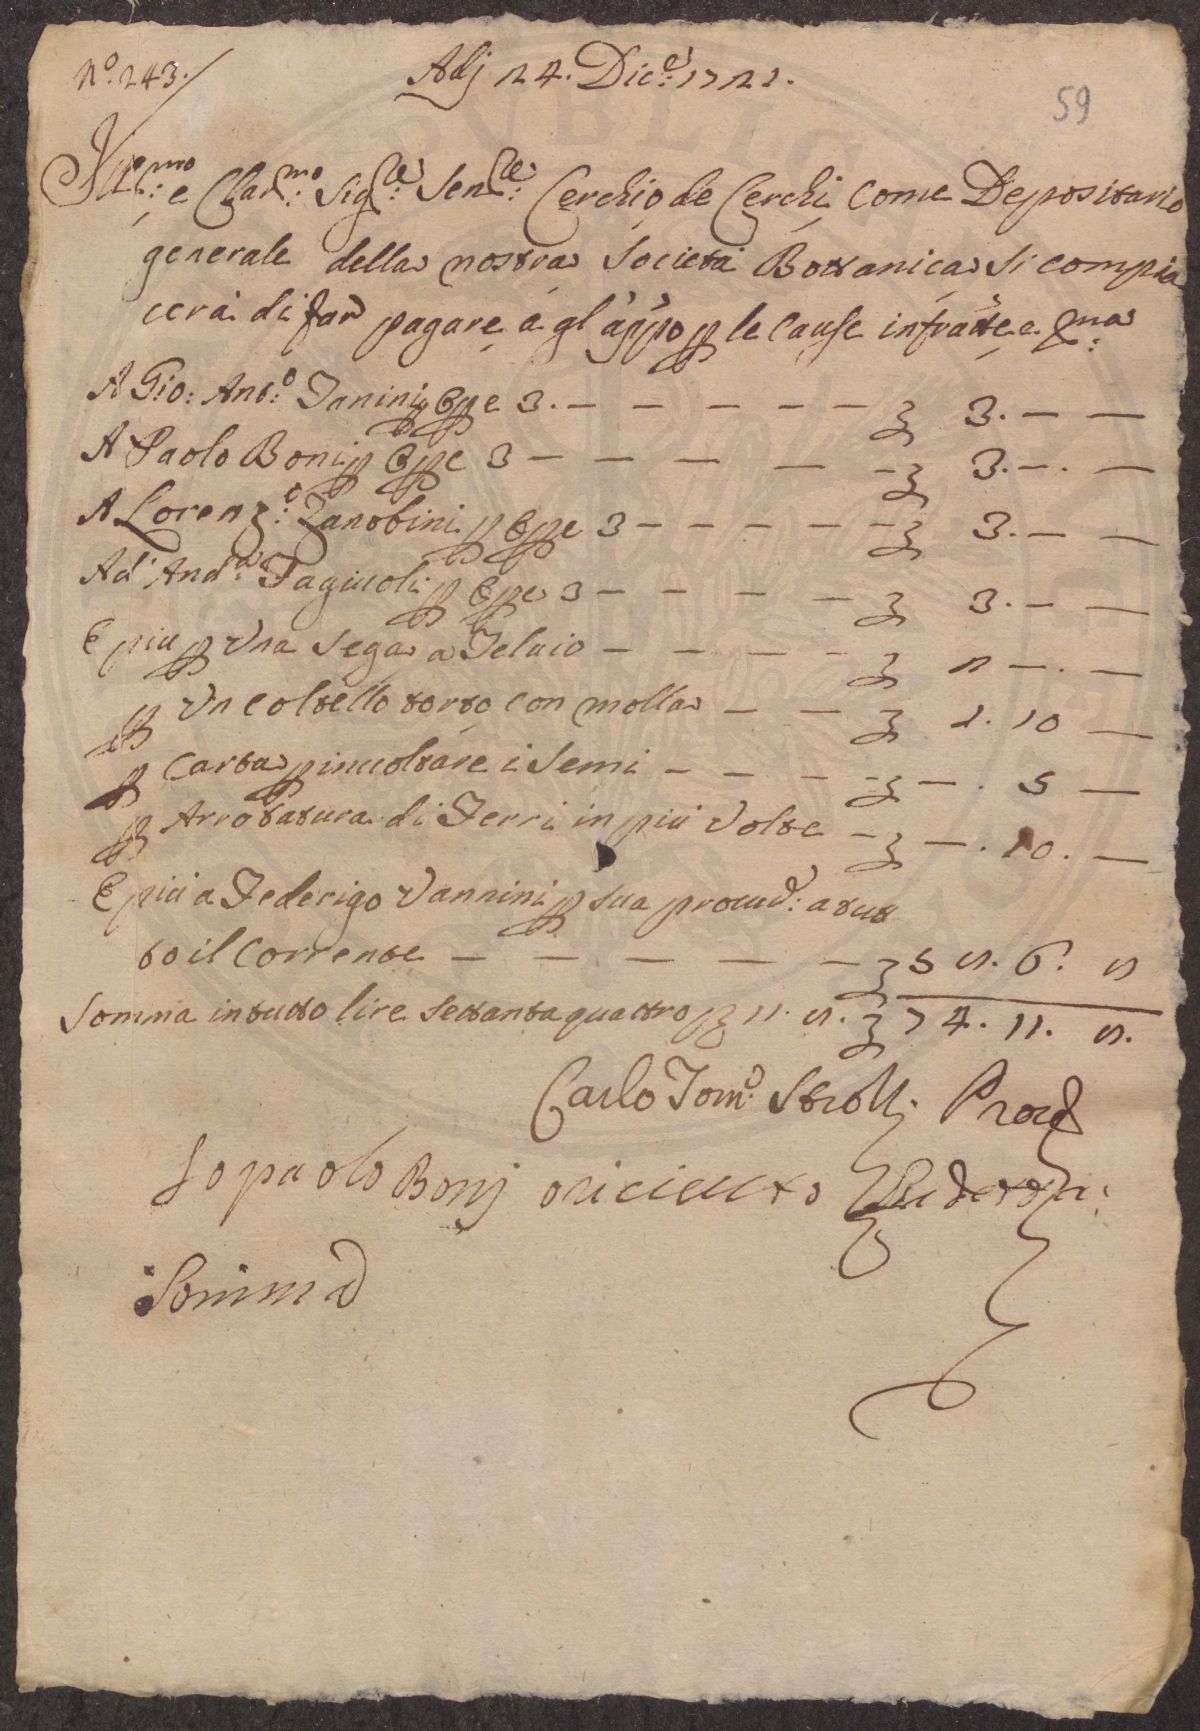 N.º 243.
Adj 24. Dic.e 1721.
59
Ill.mo e Clar.mo Sig.re Sen.re Cerchio de Cerchi Come Depositario
generale della nostra Società Bottanica Si compia
cerà di far pagare à gl'app.o p le cause infratte e p.ma
A Gio: Ant.o Fanini p Ope 3. — 3. —
A Paolo Boni p Ope 3 — 3. —
A Lorenz.o Zanobini p Ope 3 — 3. —
Ad And.a Fagiuoli p Ope 3 — 3. —
E piu p Una Sega a Telaio — 2 —
p Un coltello torto con molla — 1. 10 —
p Carta p inuoltare i Semi — 5 —
p Arrotatura di Ferri in più Volte — 10. —
E più a Federigo Vannini p sua proui.d: a tut
to il Corrente — 52. 6. 2
Somma in tutto lire settanta quattro 11. 2. — 74. 11. 2.
Carlo Tom.o Strozzi Prou.d
Io paolo Bonj ò riceuuto la detta
Somma